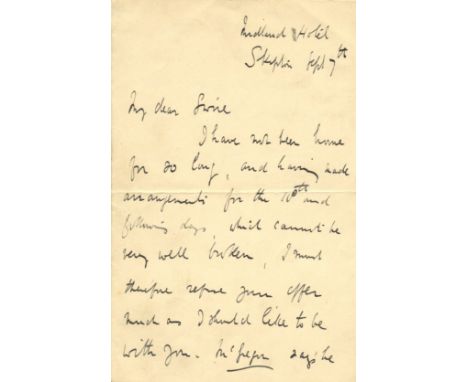 Midland Hotel
Skipton Sept 7th
My dear Swire
I have not been home
for so long, and having made
arrangements for the 10th and
following days, which cannot be
very well broken, I must
therefore refuse your offer
much as I should like to be
with you. McGregor says he